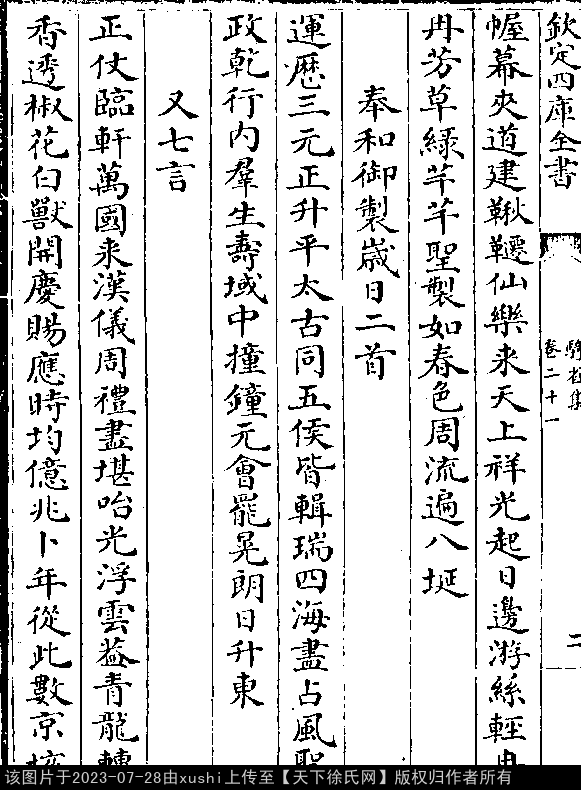 欽定四庫全書
卷二十一
二
幄幕夾道建鞦韆仙樂来天上祥光起日邊游絲輕冉
冉芳草綠芊芊聖製如春色周流遍八埏
奉和御製歲日二首
運歷三元正升平太古同五侯皆輯瑞四海盡占風聖
政乾行内羣生壽域中撞鐘元會罷晃朗日升東
又七言
正仗臨軒萬國来漢儀周禮盡堪咍光浮雲葢青龍轉
香透椒花白獸開慶賜應時均億兆卜年從此數京垓
该图片于2023-07-28由xushi上传至【天下徐氏网】版权归作者所有